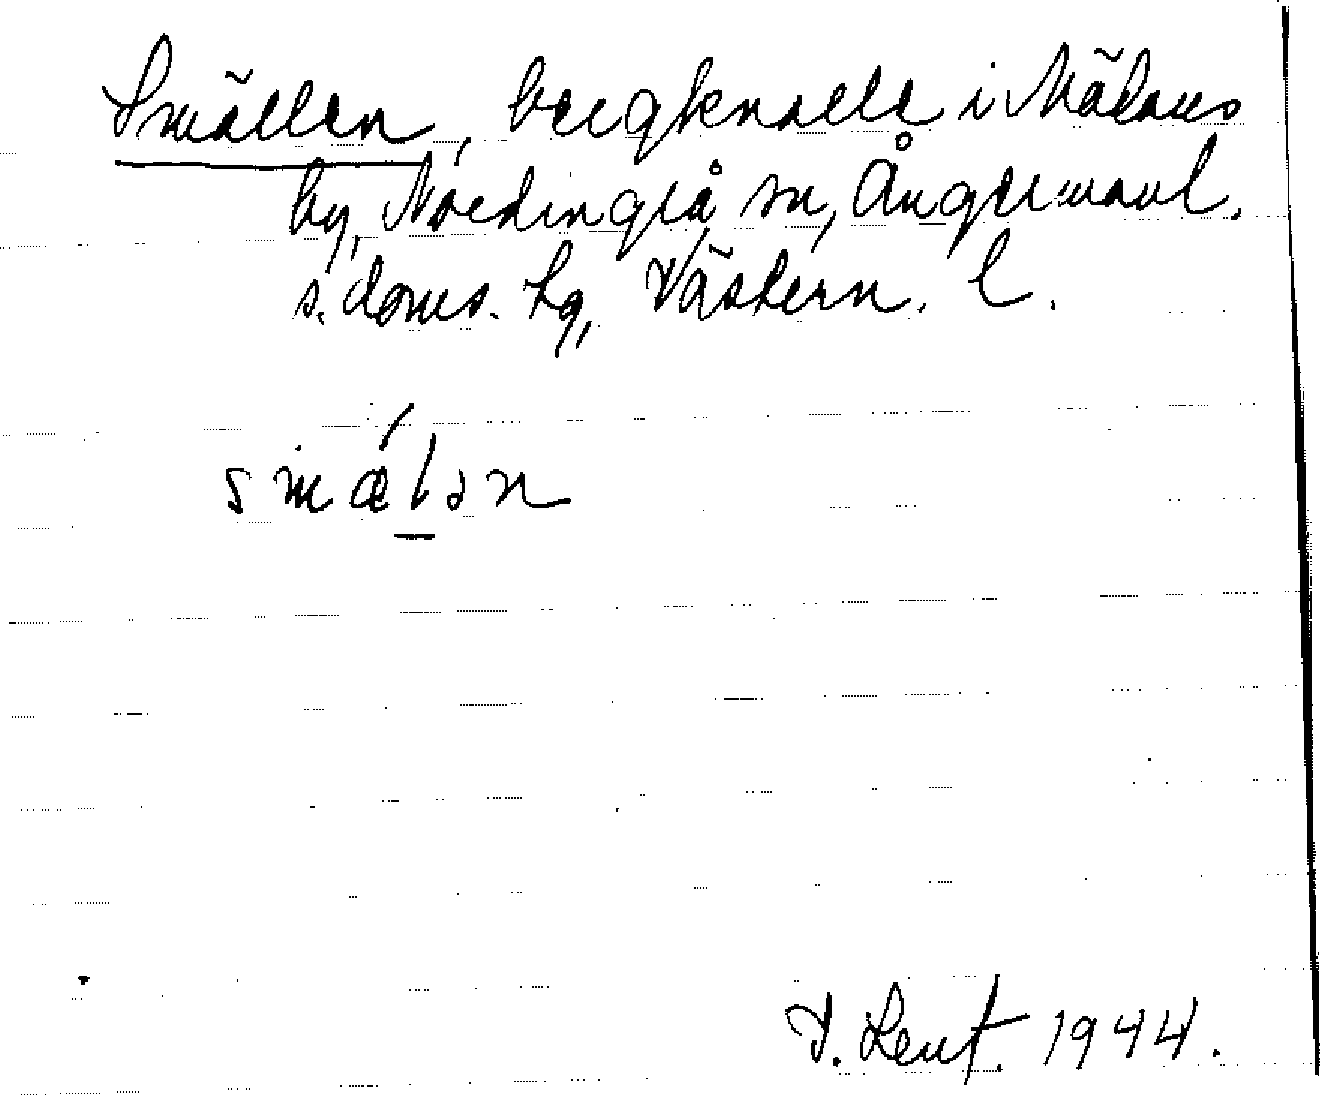 Smällen, bergknalle i Mädans
by, Nordingrå sn, Ångermanl.
s. doms. hg, Västern. l.
smǽlən
V. Lent. 1944.